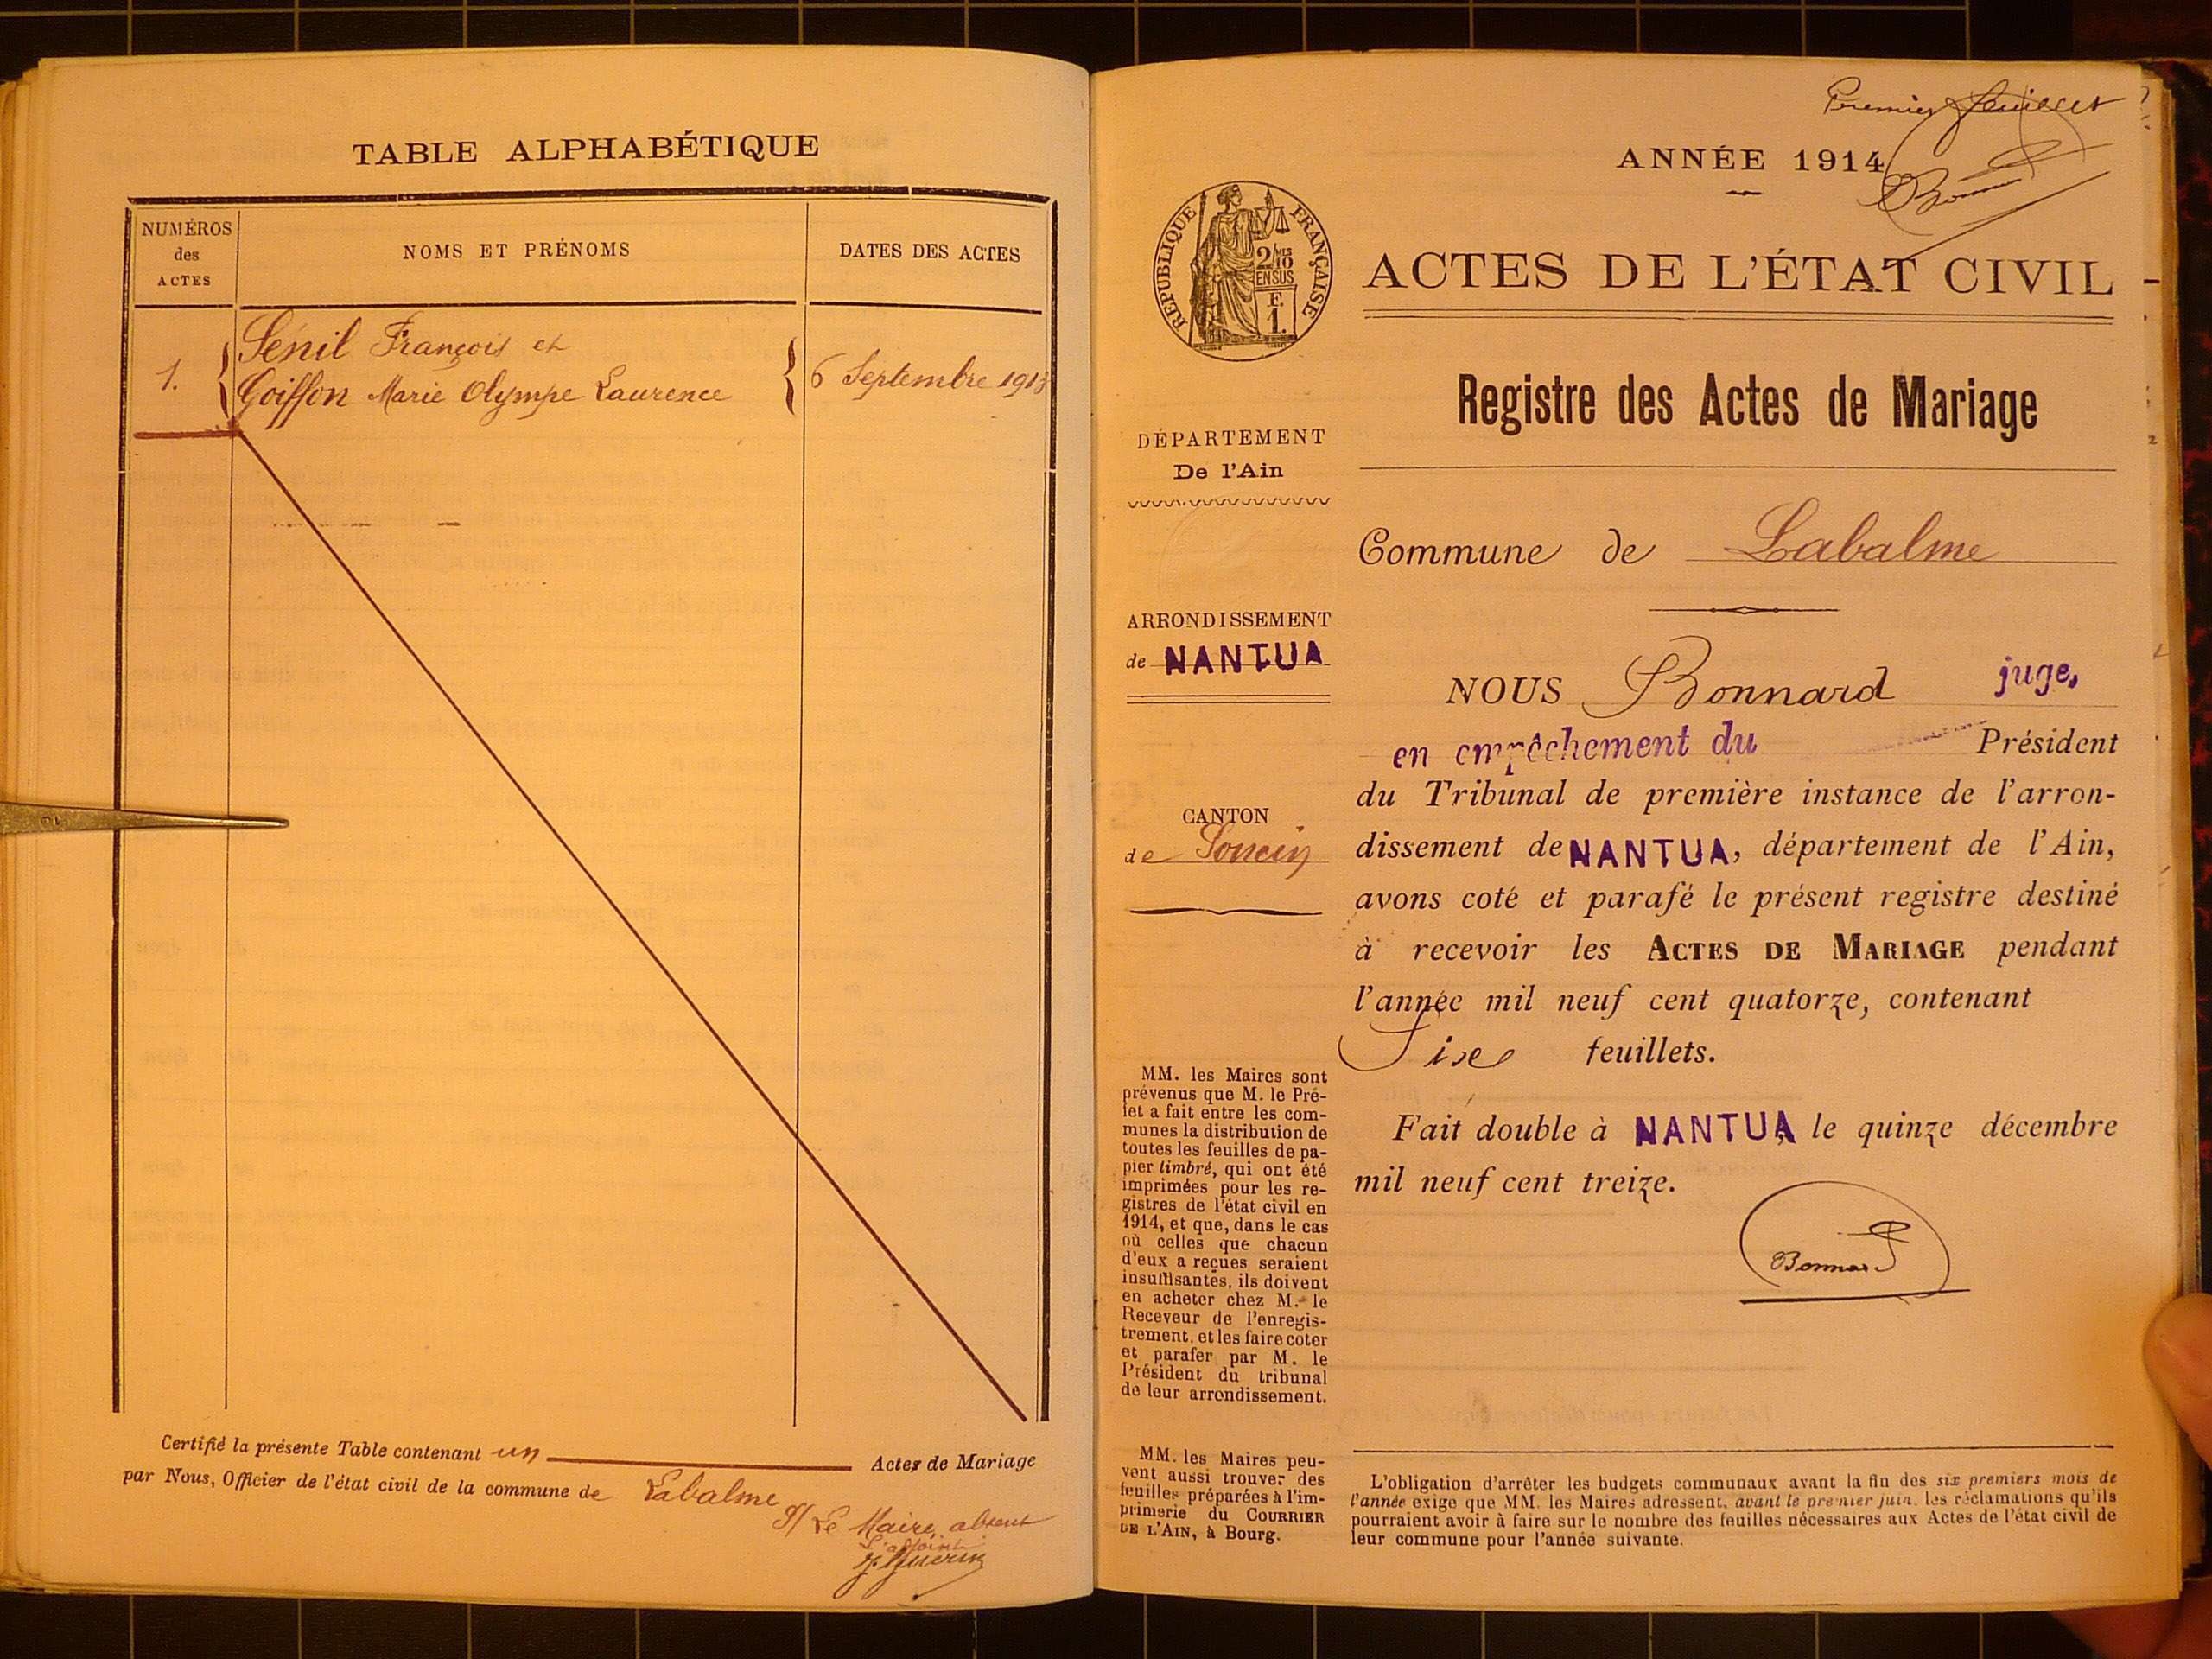 TABLE ALPHABÉTIQUE
NUMÉROS
des
ACTES
NOMS ET PRÉNOMS
DATES DES ACTES
1.
Sénil François et
Goiffon Marie Olympe Laurence
6 Septembre 1913
Certifié la présente Table contenant un Actes de Mariage
par Nous, Officier de l'état civil de la commune de Labalme
P/ Le Maire, absent
L'adjoint
Premier feuillet
ANNÉE 1914
Bonnard
RÉPUBLIQUE FRANÇAISE
2/MES
10
EN SUS
F.
1.
ACTES DE L'ÉTAT CIVIL
Registre des Actes de Mariage
DÉPARTEMENT
De l'Ain
Commune de Labalme
ARRONDISSEMENT
de NANTUA
CANTON
de Poncin
NOUS Bonnard juge,
en empêchement du Président
du Tribunal de première instance de l'arron-
dissement de NANTUA, département de l'Ain,
avons coté et parafé le présent registre destiné
à recevoir les ACTES DE MARIAGE pendant
l'année mil neuf cent quatorze, contenant
Six feuillets.
Fait double à NANTUA le quinze décembre
mil neuf cent treize.
Bonnard
MM. les Maires sont
prévenus que M. le Pré-
fet a fait entre les com-
munes la distribution de
toutes les feuilles de pa-
pier timbré, qui ont été
imprimées pour les re-
gistres de l'état civil en
1914, et que, dans le cas
où celles que chacun
d'eux a reçues seraient
insuffisantes, ils doivent
en acheter chez M. le
Receveur de l'enregis-
trement, et les faire coter
et parafer par M. le
Président du tribunal
de leur arrondissement.
MM. les Maires peu-
vent aussi trouver des
feuilles préparées à l'im-
primerie du COURRIER
DE L'AIN, à Bourg.
L'obligation d'arrêter les budgets communaux avant la fin des six premiers mois de
l'année exige que MM. les Maires adressent, avant le premier juin, les réclamations qu'ils
pourraient avoir à faire sur le nombre des feuilles nécessaires aux Actes de l'état civil de
leur commune pour l'année suivante.